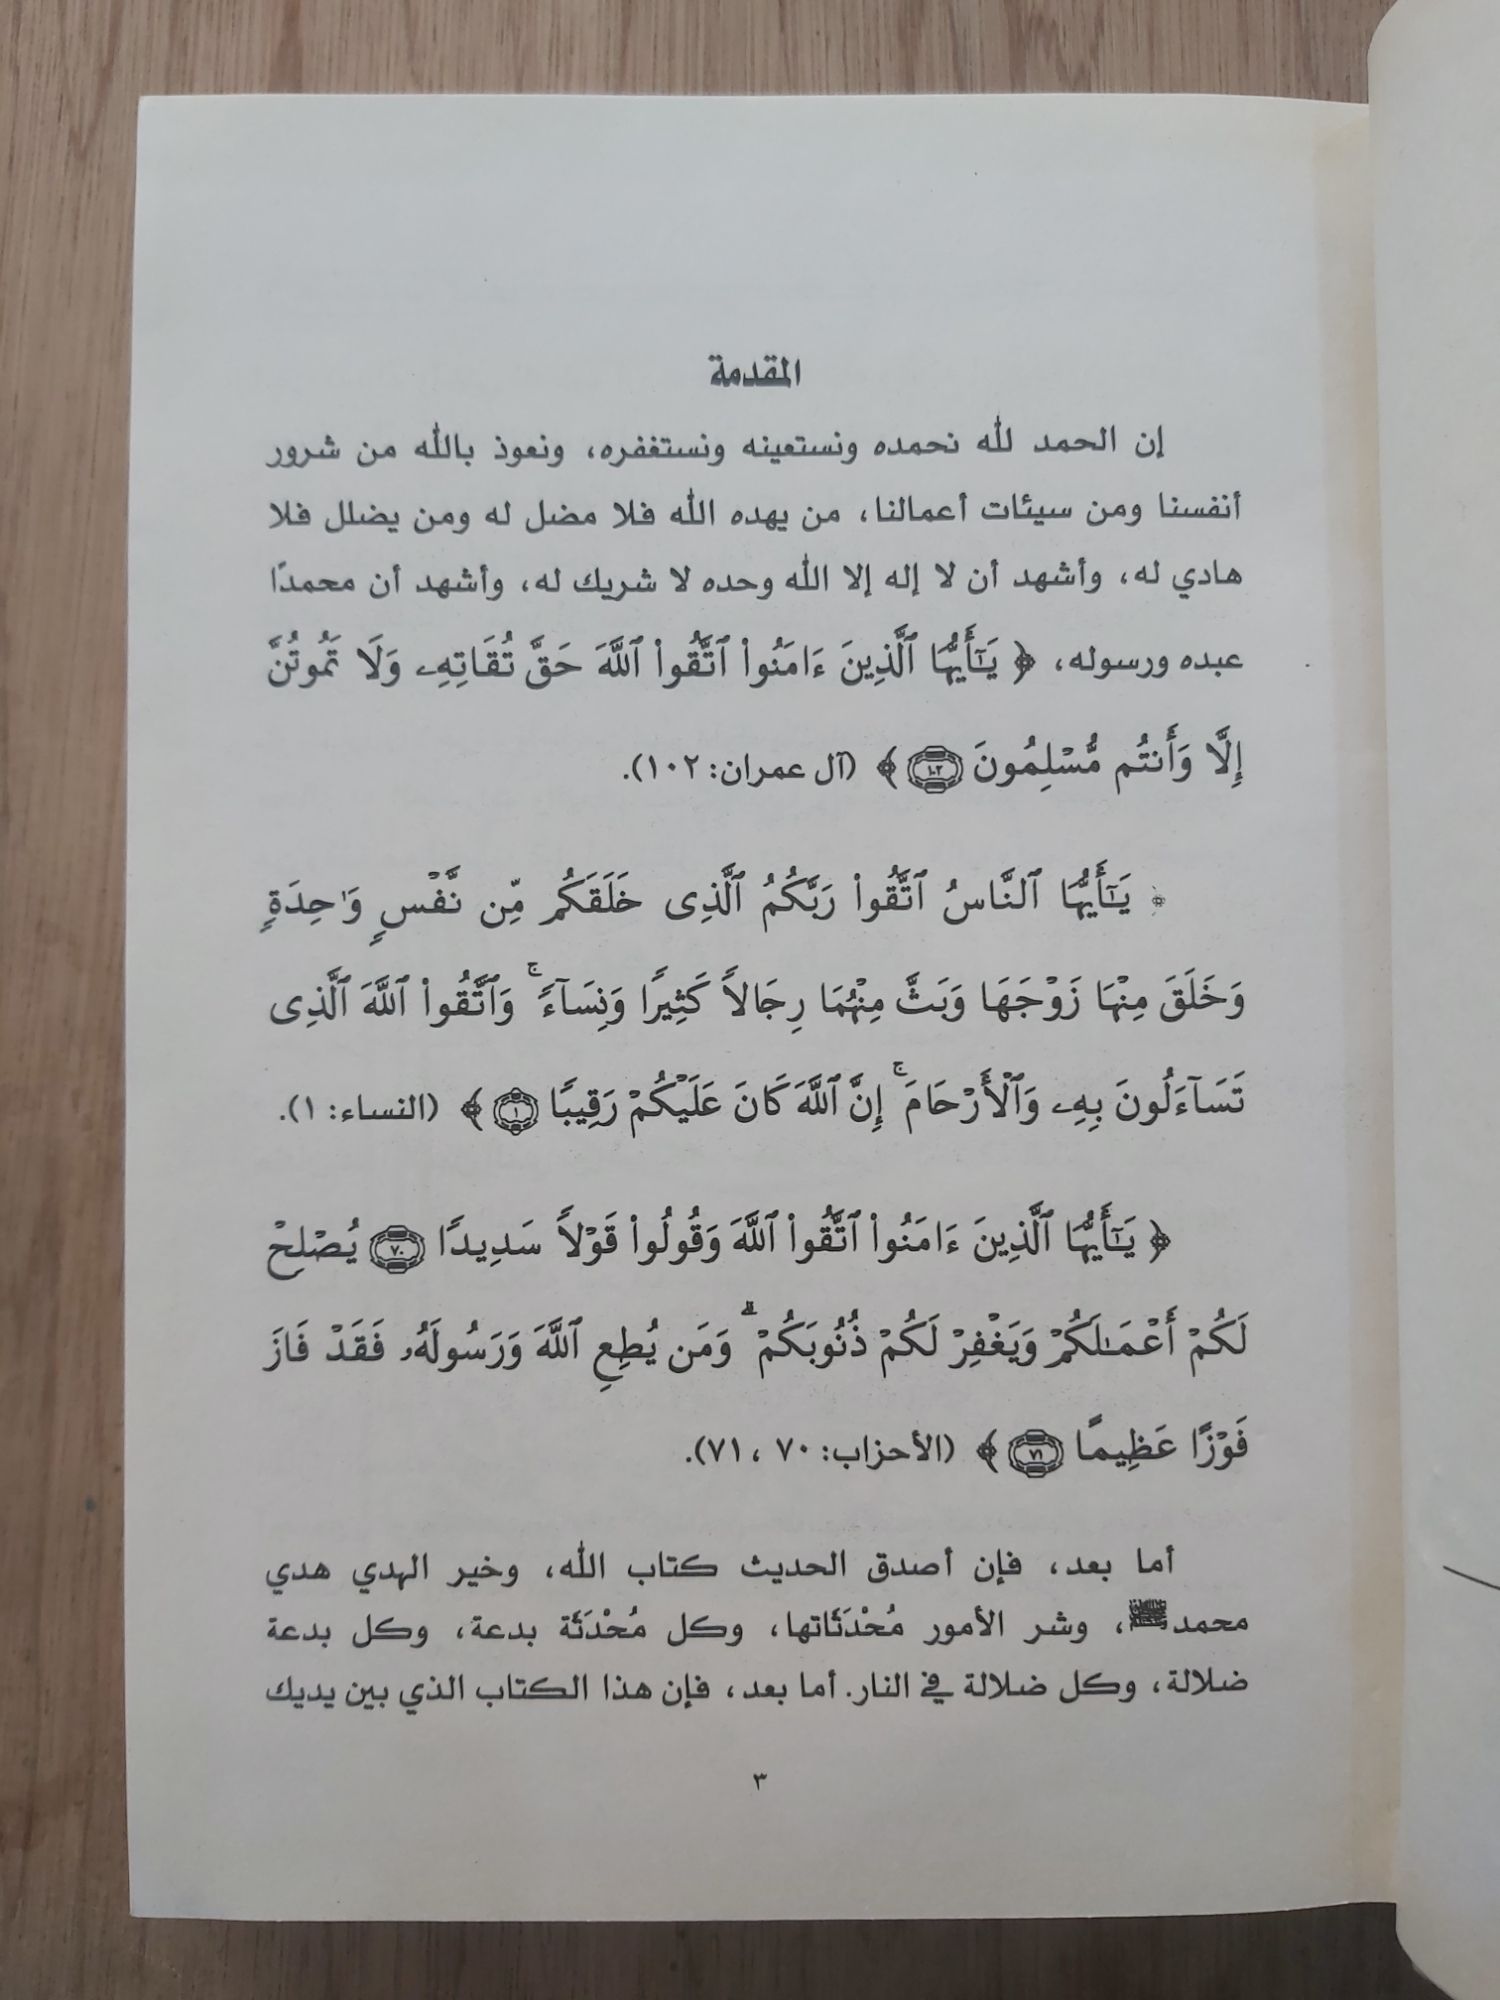 المقدمة
إن الحمد لله نحمده ونستعينه ونستغفره، ونعوذ بالله من شرور
أنفسنا ومن سيئات أعمالنا، من يهده الله فلا مضل له ومن يضلل فلا
هادي له، وأشهد أن لا إله إلا الله وحده لا شريك له، وأشهد أن محمدًا
عبده ورسوله، ﴿ يَـٰٓأَيُّهَا ٱلَّذِينَ ءَامَنُوا۟ ٱتَّقُوا۟ ٱللَّهَ حَقَّ تُقَاتِهِۦ وَلَا تَمُوتُنَّ
إِلَّا وَأَنتُم مُّسْلِمُونَ ١٠٢ ﴾ (آل عمران: ١٠٢).
﴿ يَـٰٓأَيُّهَا ٱلنَّاسُ ٱتَّقُوا۟ رَبَّكُمُ ٱلَّذِى خَلَقَكُم مِّن نَّفْسٍ وَٰحِدَةٍ
وَخَلَقَ مِنْهَا زَوْجَهَا وَبَثَّ مِنْهُمَا رِجَالاً كَثِيرًا وَنِسَآءً ۚ وَٱتَّقُوا۟ ٱللَّهَ ٱلَّذِى
تَسَآءَلُونَ بِهِۦ وَٱلْأَرْحَامَ ۚ إِنَّ ٱللَّهَ كَانَ عَلَيْكُمْ رَقِيبًا ١ ﴾ (النساء: ١).
﴿ يَـٰٓأَيُّهَا ٱلَّذِينَ ءَامَنُوا۟ ٱتَّقُوا۟ ٱللَّهَ وَقُولُوا۟ قَوْلاً سَدِيدًا ٧٠ يُصْلِحْ
لَكُمْ أَعْمَـٰلَكُمْ وَيَغْفِرْ لَكُمْ ذُنُوبَكُمْ ۗ وَمَن يُطِعِ ٱللَّهَ وَرَسُولَهُۥ فَقَدْ فَازَ
فَوْزًا عَظِيمًا ٧١ ﴾ (الأحزاب: ٧٠ ، ٧١).
أما بعد، فإن أصدق الحديث كتاب الله، وخير الهدي هدي
محمد ﷺ، وشر الأمور مُحْدَثَاتها، وكل مُحْدَثَة بدعة، وكل بدعة
ضلالة، وكل ضلالة في النار. أما بعد، فإن هذا الكتاب الذي بين يديك
٣